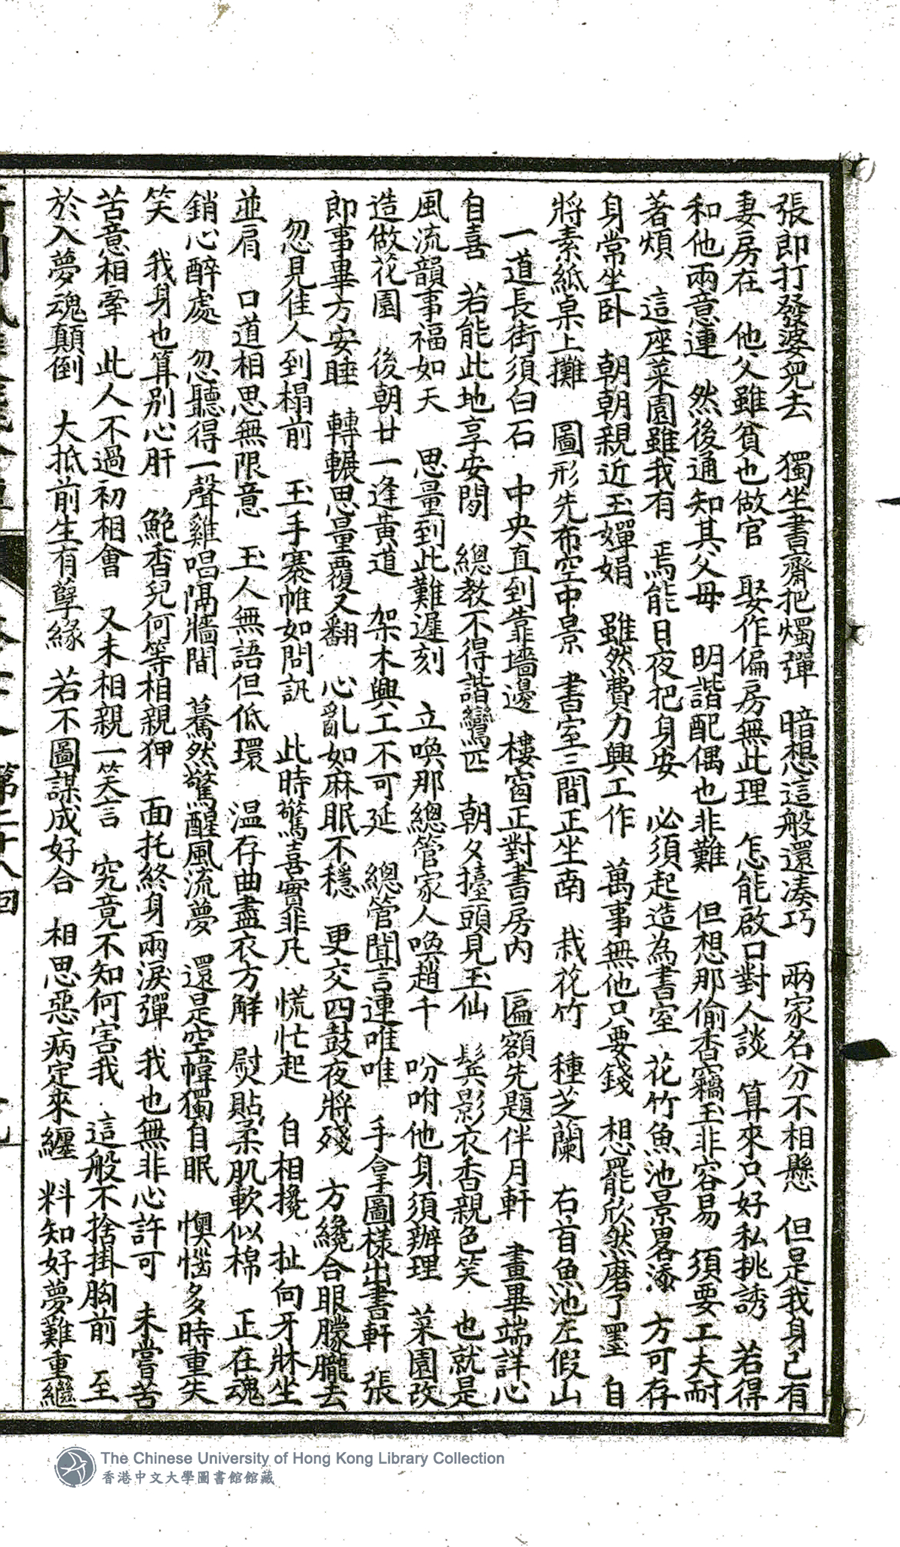 張即打發婆兒去　獨坐書齋把燭彈　暗想這般還湊巧　兩家名分不相懸　但是我身己有
妻房在　他父雖貧也做官　娶作偏房無此理　怎能啟口對人談　算來只好私挑誘　若得
和他兩意連　然後通知其父母　明諧配偶也非難　但想那偷香竊玉非容易　須要工夫耐
著煩　這座菜園雖我有　焉能日夜把身安　必須起造為書室　花竹魚池景畧添　方可存
身常坐卧　朝朝親近玉嬋娟　雖然費力興工作　萬事無他只要錢　想罷欣然磨了墨　自
將素紙桌上攤　圖形先布空中景　書室三間正坐南　栽花竹　種芝蘭　右首魚池左假山
一道長街須白石　中央直到靠墻邊　樓窗正對書房內　匾額先題伴月軒　畫畢端詳心
自喜　若能此地享安閒　總教不得諧鸞匹　朝夕擡頭見玉仙　鬂影衣香親色笑　也就是
風流韻事福如天　思量到此難遲刻　立喚那總管家人喚趙千　吩咐他身須辦理　菜園改
造做花園　後朝廿一逢黃道　架木興工不可延　總管聞言連唯唯　手拿圖樣出書軒　張
即事畢方安睡　轉輾思量覆又翻　心亂如麻眠不穩　更交四鼓夜將殘　方纔合眼朦朧去
忽見佳人到榻前　玉手褰帷如問訊　此時驚喜實非凡　慌忙起　自相攙　扯向牙牀坐
並肩　口道相思無限意　玉人無語但低環　温存曲盡衣方解　熨貼柔肌軟似棉　正在魂
銷心醉處　忽聽得一聲雞唱隔牆間　驀然驚醒風流夢　還是空幃獨自眠　懊惱多時重失
笑　我身也算別心肝　鮑香兒何等相親狎　面托終身兩淚彈　我也無非心許可　未嘗苦
苦意相牽　此人不過初相會　又未相親一笑言　究竟不知何害我　這般不捨掛胸前　至
於入夢魂顛倒　大抵前生有孽緣　若不圖謀成好合　相思惡病定來纏　料知好夢難重繼
第二十八回
The Chinese University of Hong Kong Library Collection
香港中文大學圖書館館藏